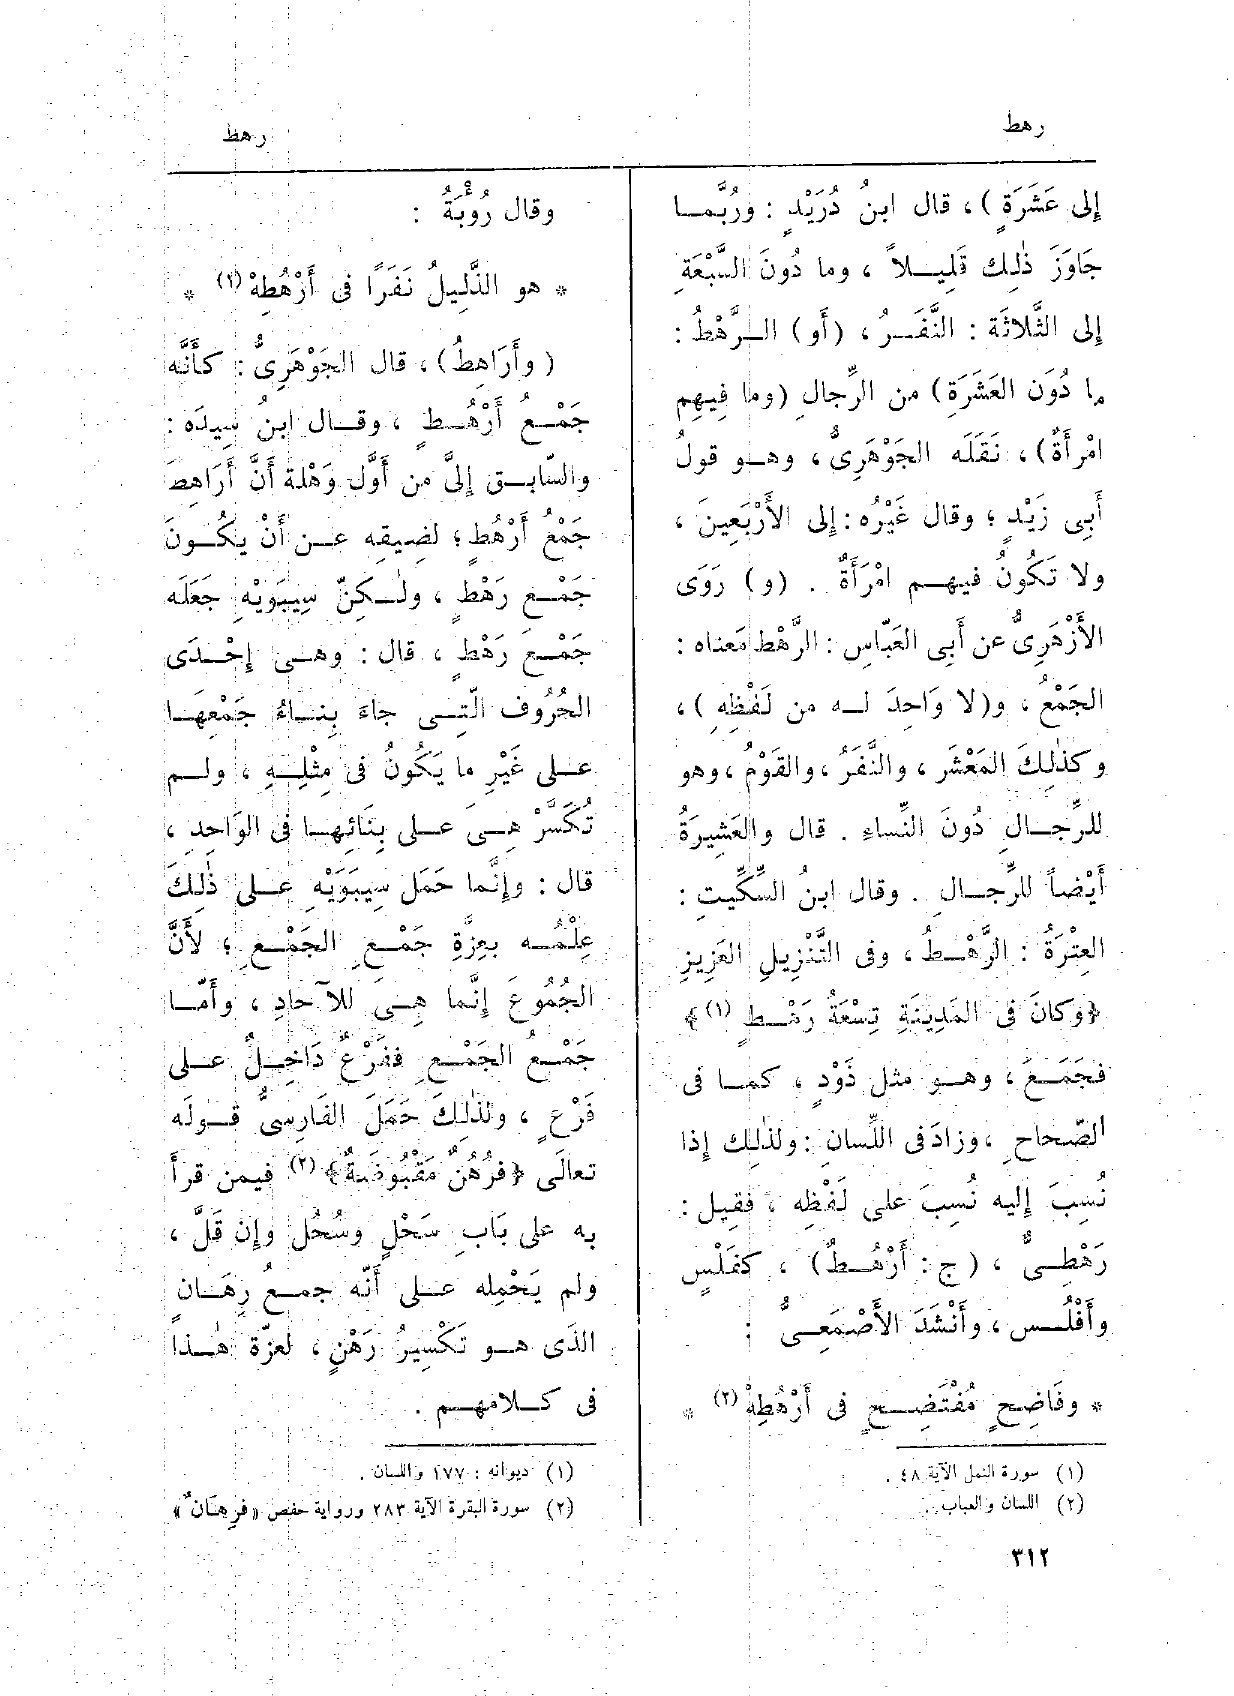 رهط
رهط
إلى عَشَرَةٍ) ، قال ابنُ دُرَيْدٍ : ورُبَّمـا
جَاوَزَ ذٰلِك قَلِيـلاً ، وما دُونَ السَّبْعَةِ
إلى الثَّلاثَة : النَّفَـرُ ، (أَو) الـرَّهْطُ :
ما دُوَن العَشَرَةِ) من الرِّجالِ (وما فِيهِم
امْرأَةٌ) ، نَقَلَه الجَوْهَرِىُّ ، وهـو قولُ
أَبِى زَيْدٍ ؛ وقال غَيْرُه : إلى الأَرْبَعِينَ ،
ولا تَكُونُ فيهـم امْرَأَةٌ . (و) رَوَى
الأَزْهَرِىُّ عن أَبِى العَبّاسِ : الرَّهْط مَعناه :
الجَمْعُ ، و(لا وَاحِدَ لـه من لَفْظِهِ) ،
وكذٰلِكَ المَعْشَر ، والنَّفَرُ ، والقَوْمُ ، وهو
للرِّجـالِ دُونَ النِّساءِ . قال والعَشِيرَةُ
أَيْضاً للرِّجـالِ . وقال ابنُ السِّكِّيتِ :
العِتْرَةُ : الرَّهْـطُ ، وفى التَّنْزِيلِ العَزِيزِ
﴿وكانَ فى المَدِينَةِ تِسْعَةُ رَهْـطٍ (١)﴾
فجَمَعَ ، وهـو مثل ذَوْدٍ ، كمـا فى
الصّحاحِ ، وزادَ فى اللِّسانِ : ولذٰلِك إذا
نُسِبَ إليه نُسِبَ على لَفْظِه ، فقِيل :
رَهْطِـىٌّ ، (ج : أَرْهُـطٌ) ، كفَلْسٍ
وأَفْلُـس ، وأَنْشَدَ الأَصْمَعِـىُّ :
* وفَاضِحٍ مُفْتَضِـحٍ فى أَرْهُطِهْ (٢) *
(١) سورة النمل الآية ٤٨ .
(٢) اللسان والعباب .
وقال رُؤْبَةُ :
* هو الذَّلِيلُ نَفَرًا فى أَرْهُطِهْ (١) *
(وأَرَاهِطُ) ، قال الجَوْهَرِىُّ : كأَنَّه
جَمْـعُ أَرْهُـطٍ ، وقـال ابنُ سِيدَه :
والسّابِـق إلىَّ من أَوَّل وَهْلة أَنَّ أَرَاهِطَ
جَمْعُ أَرْهُطٍ ؛ لضِيقِه عـن أَنْ يكُـونَ
جَمْـع رَهْطٍ ، ولـٰكِنّ سِيبَوَيْهِ جَعَلَه
جَمْـعَ رَهْطٍ ، قال : وهـى إحْـدَى
الحُرُوف الّتِـى جاءَ بِنـاءُ جَمْعِهَـا
عـلى غَيْرِ ما يَكُونُ فى مِثْلِـهِ ، ولـم
تُكَسَّرْ هِـىَ عـلى بِنَائِهـا فى الوَاحِدِ ،
قال : وإنَّما حَمَل سِيبَوَيْهِ عـلى ذٰلِكَ
عِلْمُـه بعِزَّةِ جَمْـعِ الجَمْـعِ ؛ لأَنَّ
الجُمُوعَ إنَّما هِـىَ للآحادِ ، وأَمّـا
جَمْـعُ الجَمْـعِ ففَرْعٌ دَاخِـلٌ عـلى
فَرْعٍ ، ولذٰلِكَ حَمَلَ الفَارِسىُّ قـولَه
تعالَى ﴿فرُهُنٌ مَقْبُوضَةٌ﴾ (٢) فيمن قرأَ
به على بَابِ سَحْلٍ وسُحُلٍ وإن قَلَّ ،
ولم يَحْمِله عـلى أَنّه جمعُ رِهَـانٍ
الذَى هـو تَكْسِيرُ رَهْنٍ ، لعزّة هـٰذا
فى كـلامهـم .
(١) ديوانه : ١٧٧ واللسان .
(٢) سورة البقرة الآية ٢٨٣ ورواية حفص «فرِهَانٌ»
٣١٢